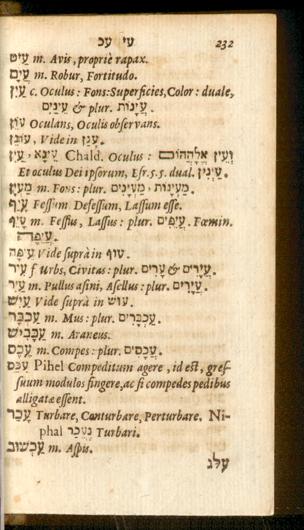 עי עכ 232
עַיִט m. Avis, propriè rapax.
עֲיָם m. Robur, Fortitudo.
עַיִן c. Oculus: Fons: Superficies, Color: duale,
עֵינַיִם & plur. עֲיָנוֹת.
עוֹיֵן Oculans, Oculis observans.
Vide in עָנָן.
Chald. Oculus: וְעֵין אֱלָהֲהוֹם
Et oculus Dei ipsorum, Esr. 5. 5. dual. עַיְנִין.
מַעְיָן m. Fons: plur. מַעְיָנִים, מַעְיָנוֹת.
עָיֵף Fessum Defessum, Lassum esse.
עָיֵף m. Fessus, Lassus: plur. עֲיֵפִים. Fœmin.
עֲיֵפָה.
עֵיפָה Vide suprà in עוּף.
עִיר f Urbs, Civitas: plur. עָרִים & עֲיָרִים.
עַיִר m. Pullus asini, Asellus: plur. עֲיָרִים.
עַיִשׁ Vide suprà in עוּשׁ.
עַכְבָּר m. Mus: plur. עַכְבָּרִים.
עַכָּבִישׁ m. Araneus.
עֶכֶס m. Compes: plur. עֲכָסִים.
עִכֵּס Pihel Compeditum agere, id est, gres-
suum modulos fingere, ac si compedes pedibus
alligatæ essent.
עָכַר Turbare, Conturbare, Perturbare. Ni-
phal נֶעְכַּר Turbari.
עַכְשׁוּב m. Aspis.
עלג